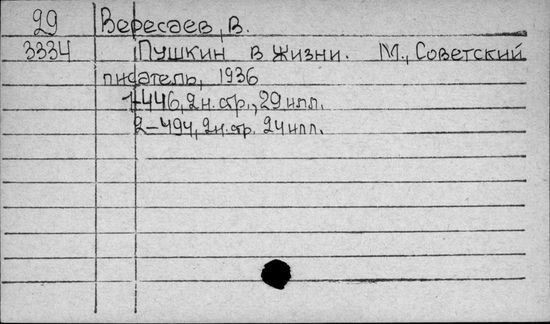 29 Вересаев, В.
3334 Пушкин в жизни. М., Советский
писатель, 1936
1-446, 2н.стр., 29илл.
2-494, 2н.стр. 24илл.